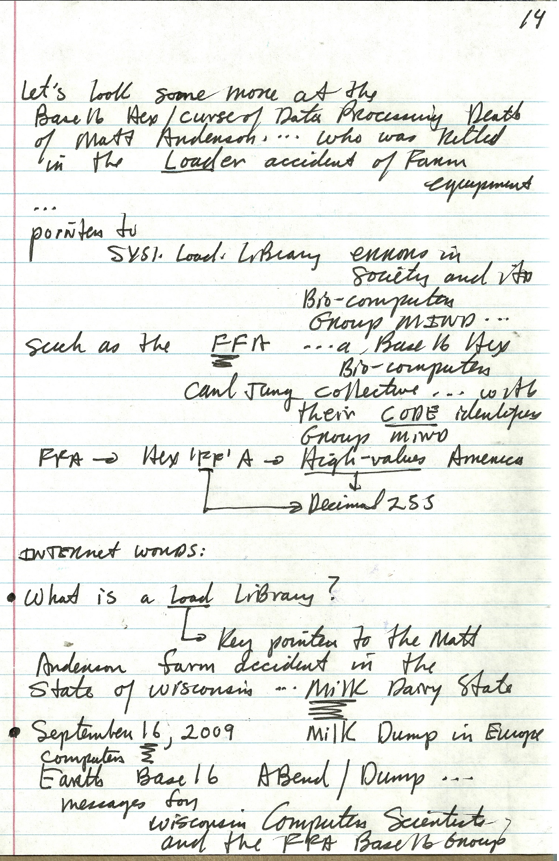 14
Let's look some more at the
Base 16 Hex/curse of Data Processing Death
of Matt Anderson.... who was killed
in the Loader accident of Farm
equipment
...
pointer to
SYS1. Load. Library errors in
Society and its
Bio-computer
Group MIND ...
such as the FFA ... a Base 16 Hex
Bio-computer
Carl Jung collective ... with
their CODE identifier
Group MIND
FFA → Hex 'FF' A → High-values America
Decimal 255
INTERNet words:
• What is a Load Library?
Key pointer to the Matt
Anderson farm accident in the
State of Wisconsin ... Milk Dairy State
• September 16, 2009 Milk Dump in Europe
computer
Earth Base 16 ABend/Dump ...
messages for
Wisconsin Computer Scientists,
and the FFA Base 16 Group